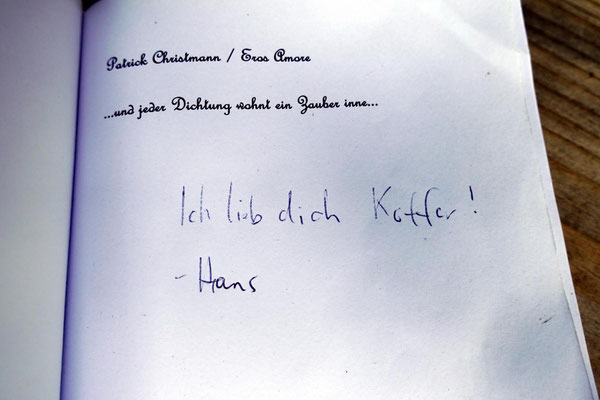 Patrick Christmann / Eros Amore
...und jeder Dichtung wohnt ein Zauber inne...
Ich lieb dich Koffer!
- Hans